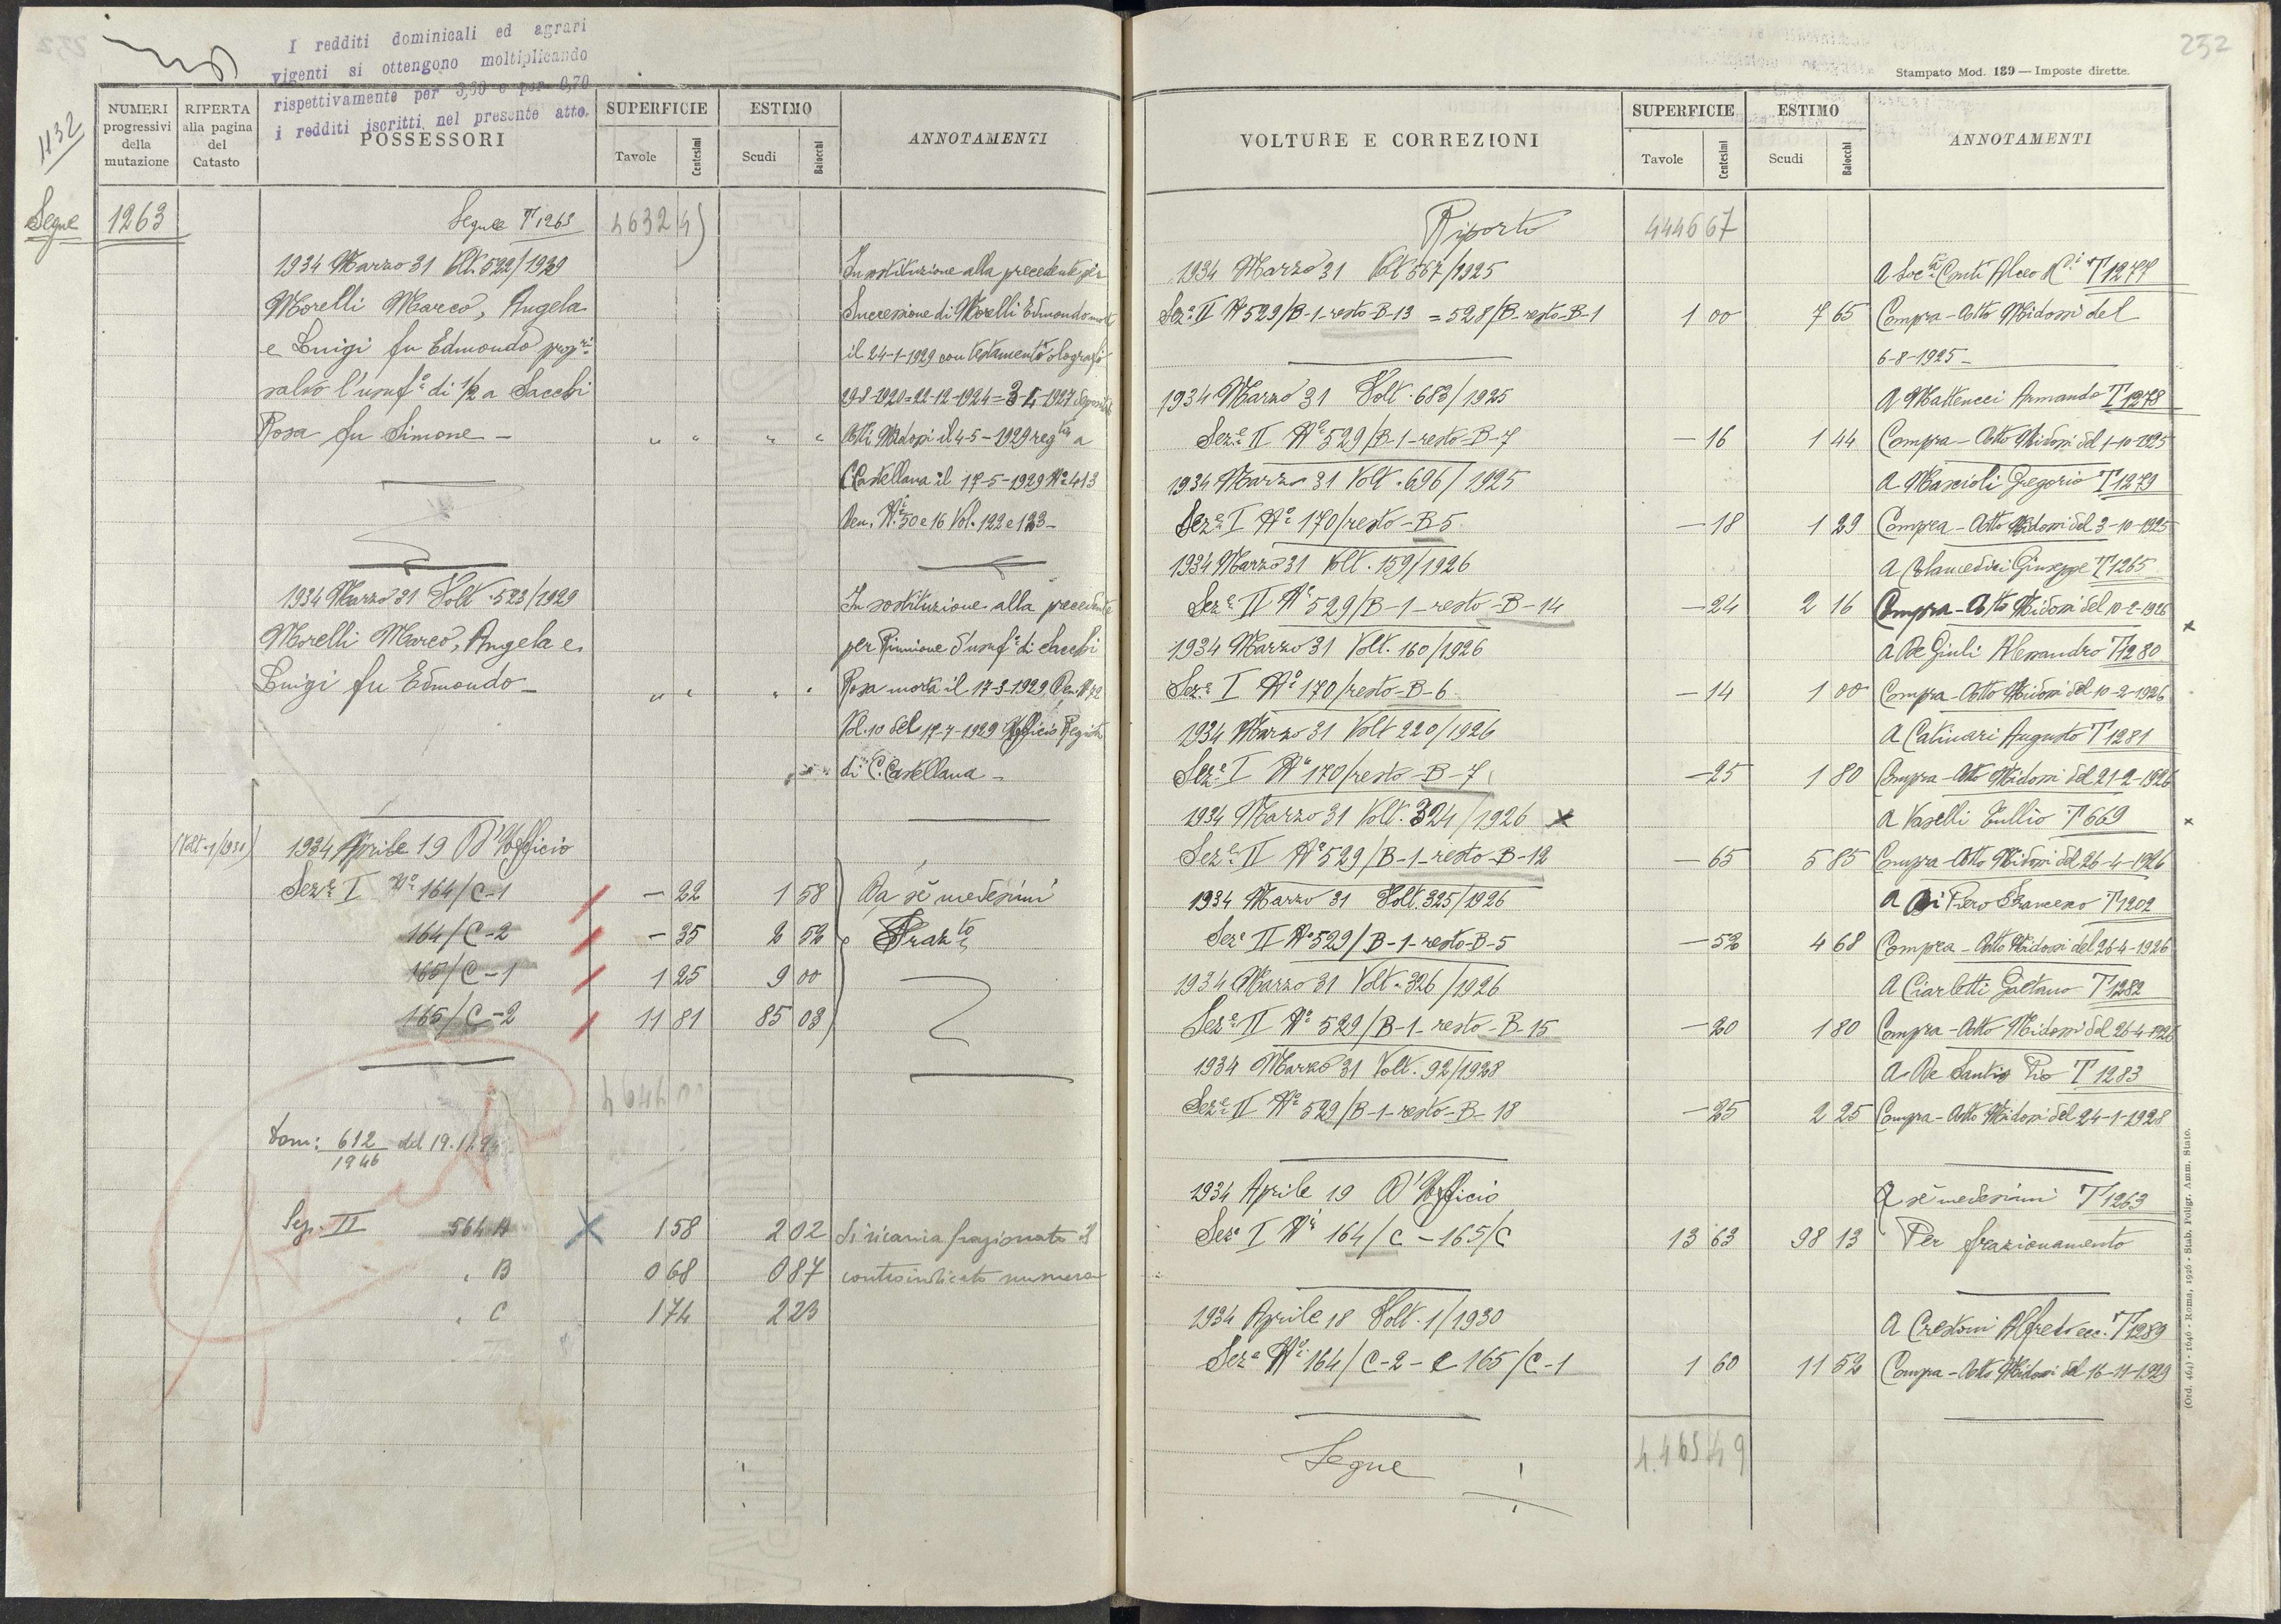 232
I redditi dominicali ed agrari
vigenti si ottengono moltiplicando
rispettivamente per 3,30 e per 0,70
i redditi iscritti nel presente atto.
1132
NUMERI progressivi della mutazione
RIFERTA alla pagina del Catasto
POSSESSORI
SUPERFICIE
Tavole
Centesimi
ESTIMO
Scudi
Baiocchi
ANNOTAMENTI
Segue 1263 Segue T 1263 4632 4
1934 Marzo 31 Volt. 522/1929 In sostituzione alla precedente per
Morelli Marco, Angela Successione di Morelli Edmondo morto
e Luigi fu Edmondo propri il 24-1-1929 con testamento olografo
salvo l'usufo di 1/2 a Sacchi 29-8-1920=22-12-1924=3-4-1927
Rosa fu Simone - " " " " Atti Midossi il 4-5-1929 regto a
C Castellana il 17-5-1929 No 413
Den. Ni 50 e 16 Vol. 122 e 123-
1934 Marzo 31 Volt. 523/1929 In sostituzione alla precedente
Morelli Marco, Angela e per Riunione d'usufo di Sacchi
Luigi fu Edmondo - " " " " Rosa morta il 17-3-1929, Den. No 72
Vol. 10 del 17-7-1929 Ufficio Registro
di C. Castellana -
(Volt. 1/1930) 1934 Aprile 19 D'Ufficio
Seze I No 164/C-1 - 22 1 58 Da sé medesimi
164/C-2 - 35 2 52 Frazto
165/C-1 1 25 9 00
165/C-2 11 81 85 03
4644
dom: 612/1946 del 19.11.94
Sez. II 564 A 1 58 2 02 Si ricarica frazionato il
" B 0 68 0 87 controindicato numero
" C 1 74 2 23
232
Stampato Mod. 139 — Imposte dirette.
VOLTURE E CORREZIONI
SUPERFICIE
Tavole
Centesimi
ESTIMO
Scudi
Baiocchi
ANNOTAMENTI
Riporto 4446 67
1934 Marzo 31 Volt 567/1925 A Soc. Conti Alceo T 1277
Seze II No 529/B-1-resto-B-13 = 528/B-resto-B-1 1 00 7 65 Compra - Atto Midossi del
6-8-1925-
1934 Marzo 31 Volt. 683/1925 A Matteucci Armando T 1278
Seze II No 529/B-1-resto-B-7 - 16 1 44 Compra - Atto Midossi del 1-10-1925
1934 Marzo 31 Volt. 696/1925 A Mascioli Gregorio T 1279
Seze I No 170/resto-B-5 - 18 1 29 Compra - Atto Midossi del 3-10-1925
1934 Marzo 31 Volt. 159/1926 A Giuseppe T 1265
Seze II No 529/B-1-resto-B-14 - 24 2 16 Compra - Atto Midossi del 10-2-1926
1934 Marzo 31 Volt. 160/1926 A De Giuli Alessandro T 1280
Seze I No 170/resto-B-6 - 14 1 00 Compra - Atto Midossi del 10-2-1926
1934 Marzo 31 Volt 220/1926 A Calinari Augusto T 1281
Seze I No 170/resto-B-7 - 25 1 80 Compra - Atto Midossi del 21-2-1926
1934 Marzo 31 Volt. 324/1926 x A Vaselli Tullio T 669
Seze II No 529/B-1-resto-B-12 - 65 5 85 Compra - Atto Midossi del 26-4-1926
1934 Marzo 31 Volt. 325/1926 A Di Piero Francesco T 1202
Seze II No 529/B-1-resto-B-5 - 52 4 68 Compra - Atto Midossi del 26-4-1926
1934 Marzo 31 Volt. 326/1926 A Ciarletti Gaetano T 1282
Seze II No 529/B-1-resto-B-15 - 20 1 80 Compra - Atto Midossi del 26-4-1926
1934 Marzo 31 Volt. 92/1928 A De Santis Pio T 1283
Seze II No 529/B-1-resto-B-18 - 25 2 25 Compra - Atto Midossi del 24-1-1928
1934 Aprile 19 D'Ufficio A sé medesimi T 1263
Seze I Ni 164/C - 165/C 13 63 98 13 Per frazionamento
1934 Aprile 18 Volt. 1/1930 A Crestoni Alfredo ecc. T 1289
Seze Ni 164/C-2 - e 165/C-1 1 60 11 52 Compra - Atto Midossi del 16-11-1929
Segue 4.465 49
(Ord. 464) - 1046 - Roma, 1926 - Stab. Poligr. Amm. Stato.